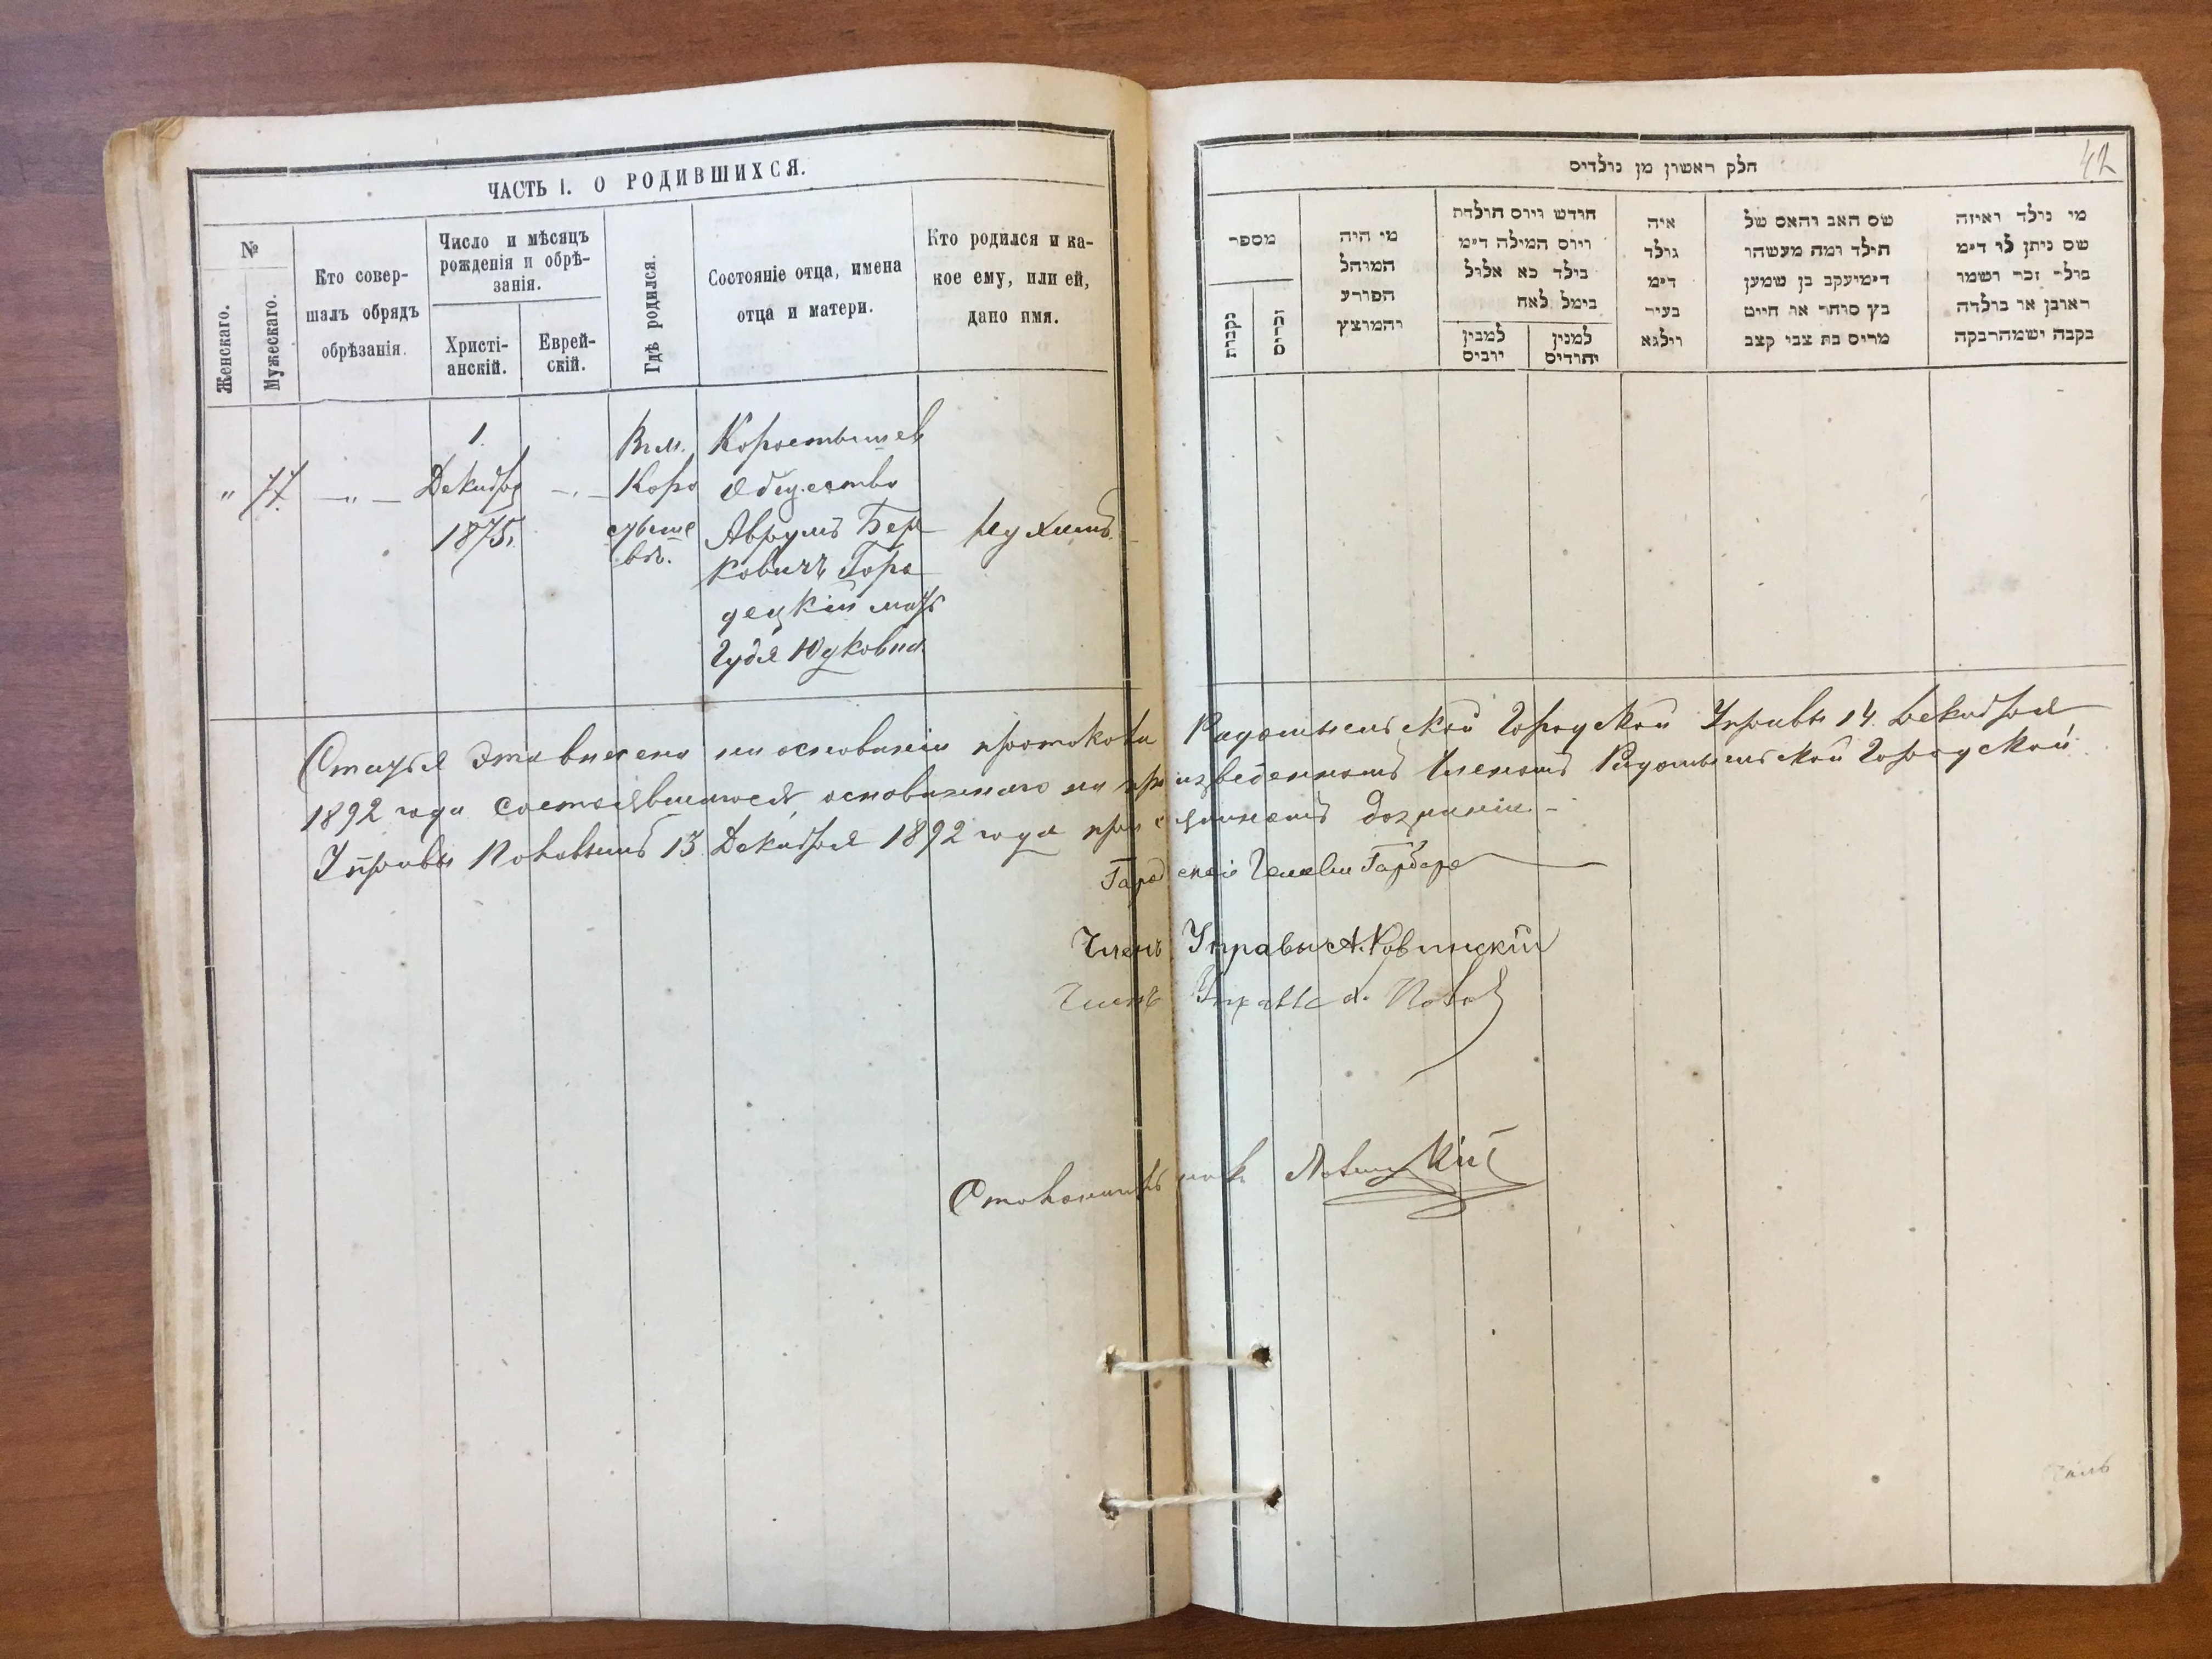 ЧАСТЬ I. О РОДИВШИХСЯ.
№
Женскаго.
Мужескаго.
Кто совер-
шалъ обрядъ
обрѣзанія.
Число и мѣсяцъ
рожденія и обрѣ-
занія.
Христі-
анскій.
Еврей-
скій.
Гдѣ родился.
Состояніе отца, имена
отца и матери.
Кто родился и ка-
кое ему, или ей,
дано имя.
" 77 — " —
1.
Декабря
1875.
Въ м.
Коро
стыше
вѣ.
Коростышев
Общество
Аврумъ Бер
ковичъ Горо
децкій мать
Юдковна
Нухимъ
Статья эта внесена на основаніи протокола Радомысльской Городской Управы 14 Декабря
1892 года состоявшагося основаннаго на произведенномъ Членомъ Радомысльской Городской
Управы 13 Декабря 1892 года при дознаніи
Городской Голова Гарбаре
Членъ Управы А.
Членъ Управы
חלק ראשון מן נולדים
42
מספר
נקבות
זכרים
מי היה
המוהל
הפורע
והמוצץ
חודש ויום תולדת
ויום המילה ד״מ
בילד כא אלול
בימל לאח
למבין
יוביס
למנין
יהודים
איה
נולד
ד״מ
בעיר
ווילנא
שם האב והאם של
הילד ומה מעשהו
ד״מיעקב בן שמען
בץ סוחר או חייט
מרים בת צבי קצב
מי נולד ואיזה
שם ניתן לו ד״מ
בולד זכר ושמו
ראובן או בולדה
בקבה ישמהרבקה